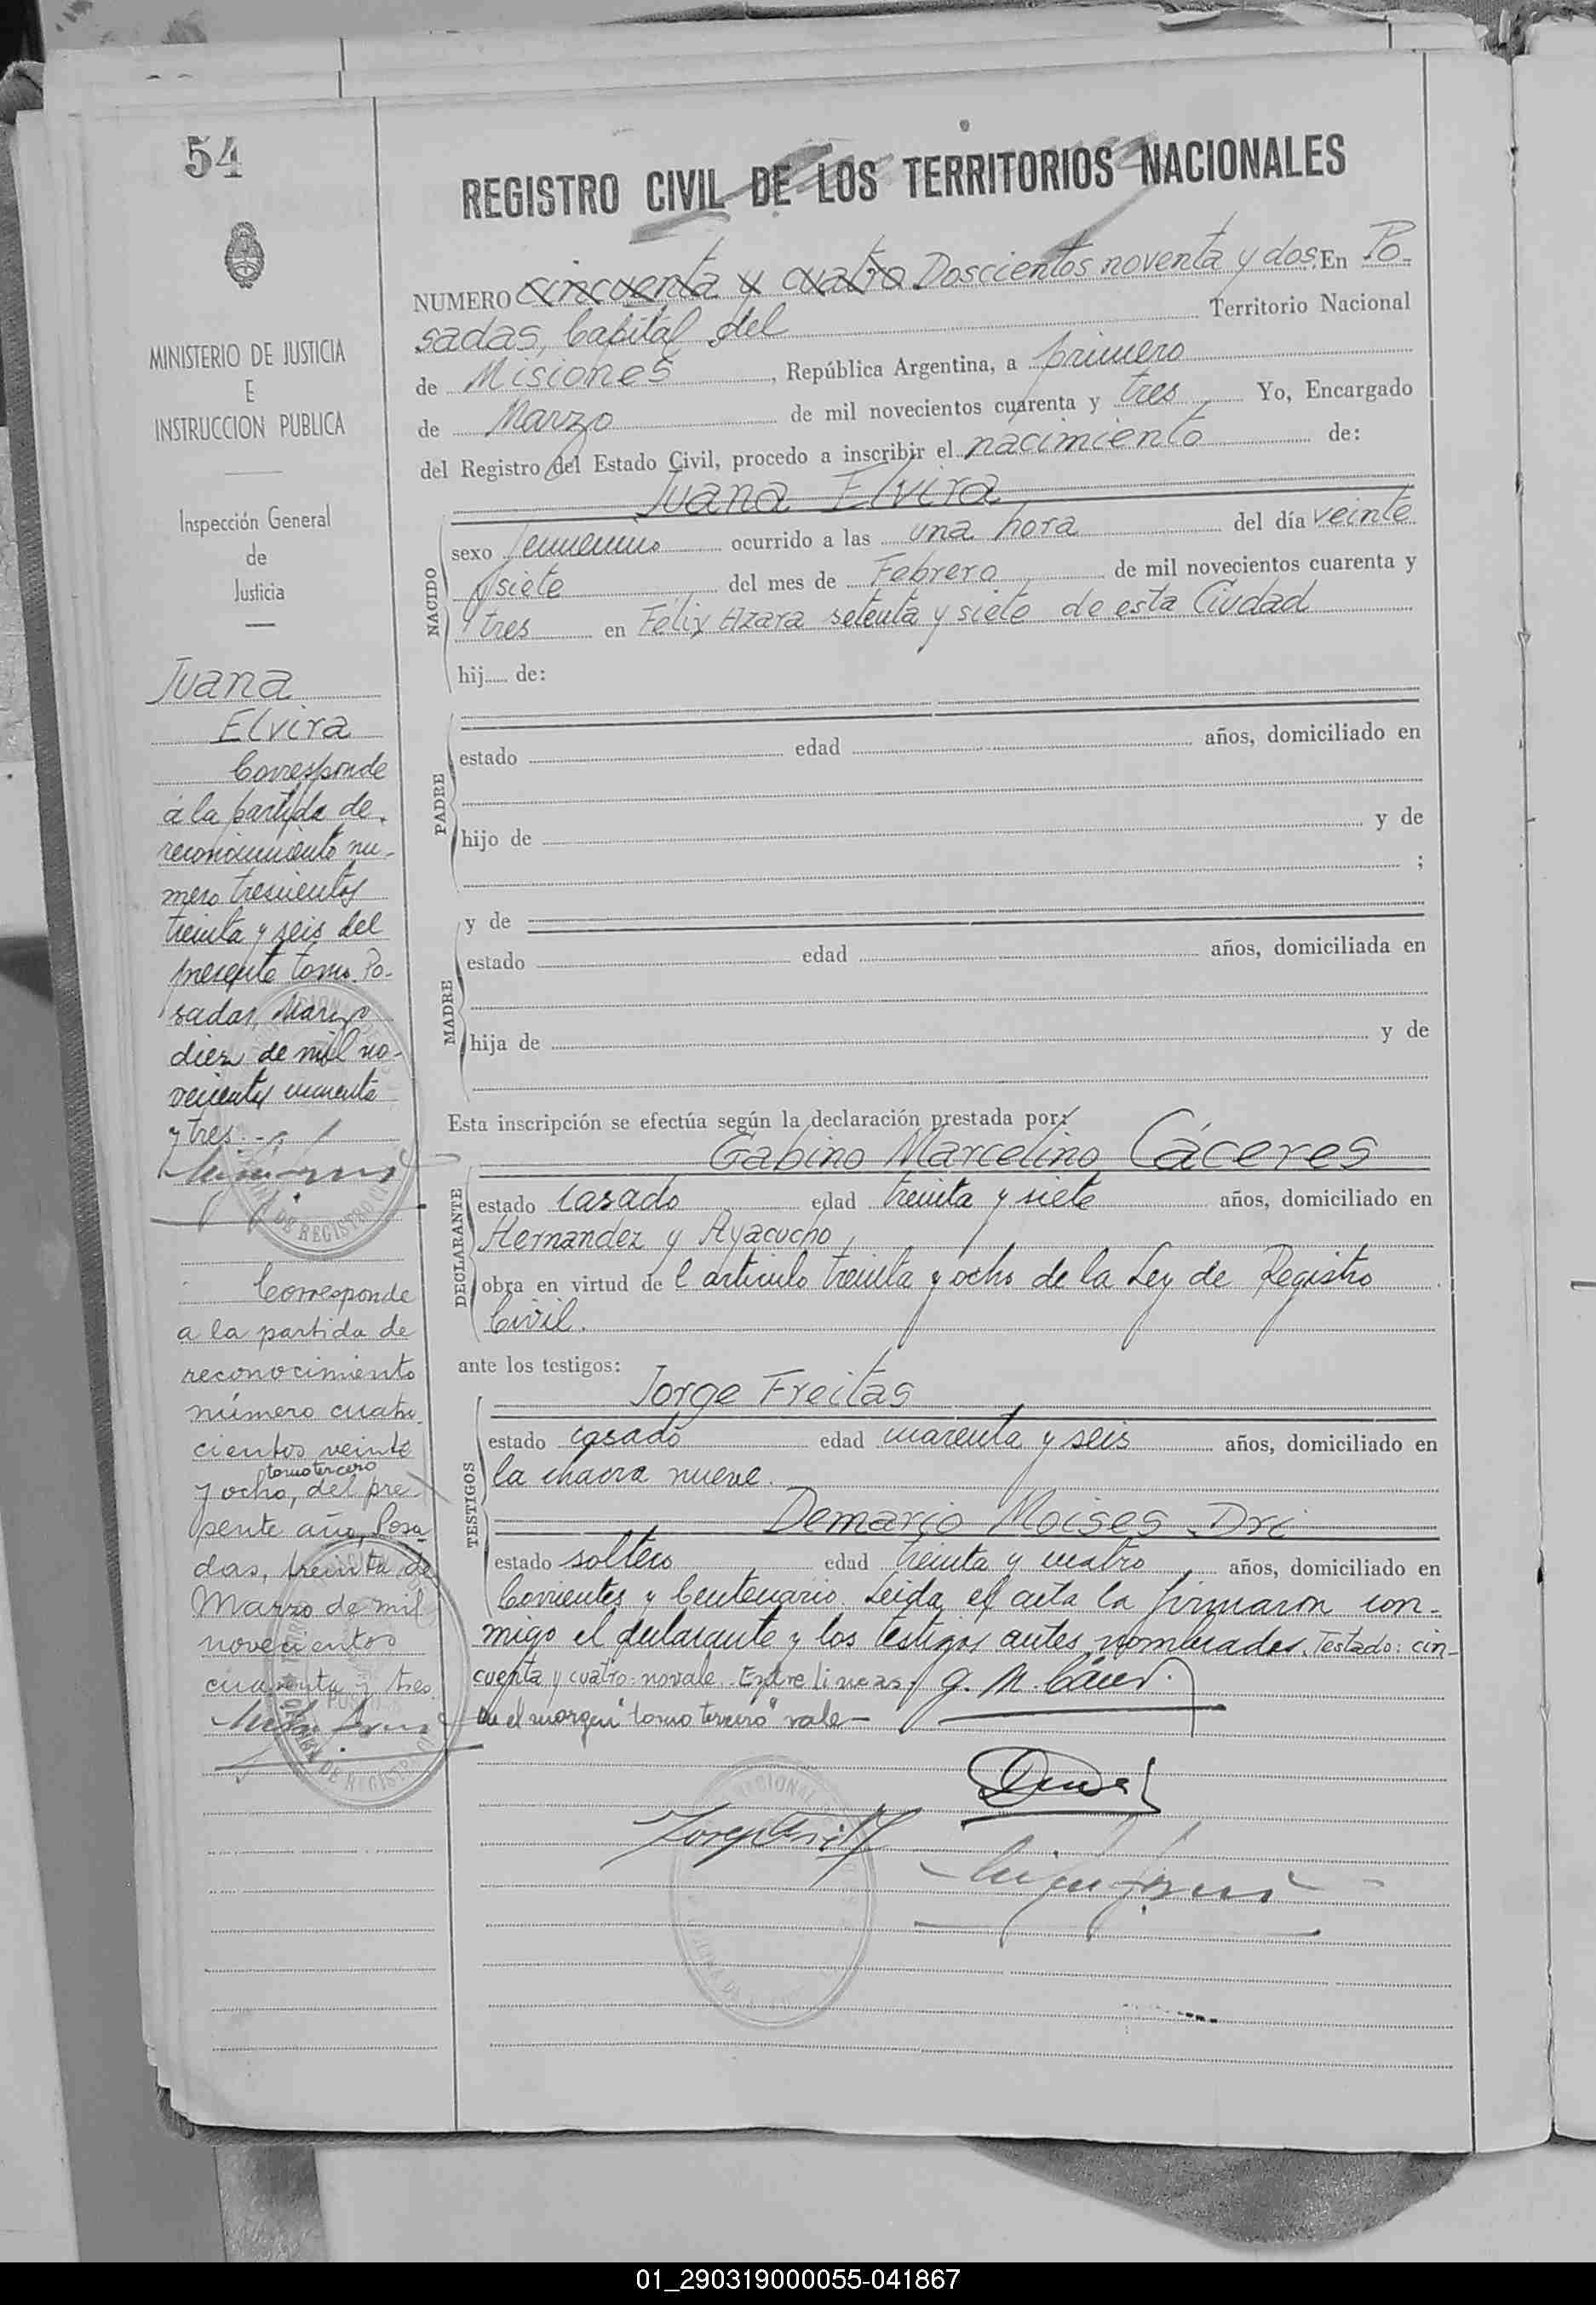 54
MINISTERIO DE JUSTICIA
E
INSTRUCCION PUBLICA
Inspección General
de
Justicia
Juana
Elvira
Corresponde
a la partida de
reconocimiento nu-
mero trescientos
treinta y seis del
presente tomo. Po-
sadas, Marzo
diez de mil no-
vecientos cuarenta
y tres.-
Corresponde
a la partida de
reconocimiento
número cuatro
cientos veinte
tomo tercero
y ocho, del pre
sente año, Posa
das, treinta de
Marzo de mil
novecientos
cuarenta y tres.
REGISTRO CIVIL DE LOS TERRITORIOS NACIONALES
NUMERO cincuenta y cuatro Doscientos noventa y dos. En Po-
sadas, Capital del Territorio Nacional
de Misiones, República Argentina, a primero
de Marzo de mil novecientos cuarenta y tres Yo, Encargado
del Registro del Estado Civil, procedo a inscribir el nacimiento de:
Juana Elvira
NACIDO
sexo femenino ocurrido a las una hora del día veinte
y siete del mes de Febrero de mil novecientos cuarenta y
tres en Félix Azara setenta y siete de esta Ciudad
hij de:
PADRE
estado edad años, domiciliado en
hijo de y de
;
MADRE
y de
estado edad años, domiciliada en
hija de y de
Esta inscripción se efectúa según la declaración prestada por:
Gabino Marcelino Cáceres
DECLARANTE
estado casado edad treinta y siete años, domiciliado en
Hernandez y Ayacucho,
obra en virtud de l articulo treinta y ocho de la Ley de Registro
Civil.
ante los testigos:
Jorge Freitas
TESTIGOS
estado casado edad cuarenta y seis años, domiciliado en
la chacra nueve.
Demario Moises Dri
estado soltero edad treinta y cuatro años, domiciliado en
Corrientes y Centenario. Leida el acta la firmaron con-
migo el declarante y los testigos antes nombrados. Testado: cin-
cuenta y cuatro: no vale. Entre lineas. G. M. Cácer.
en el margen "tomo tercero" vale-
01_290319000055-041867